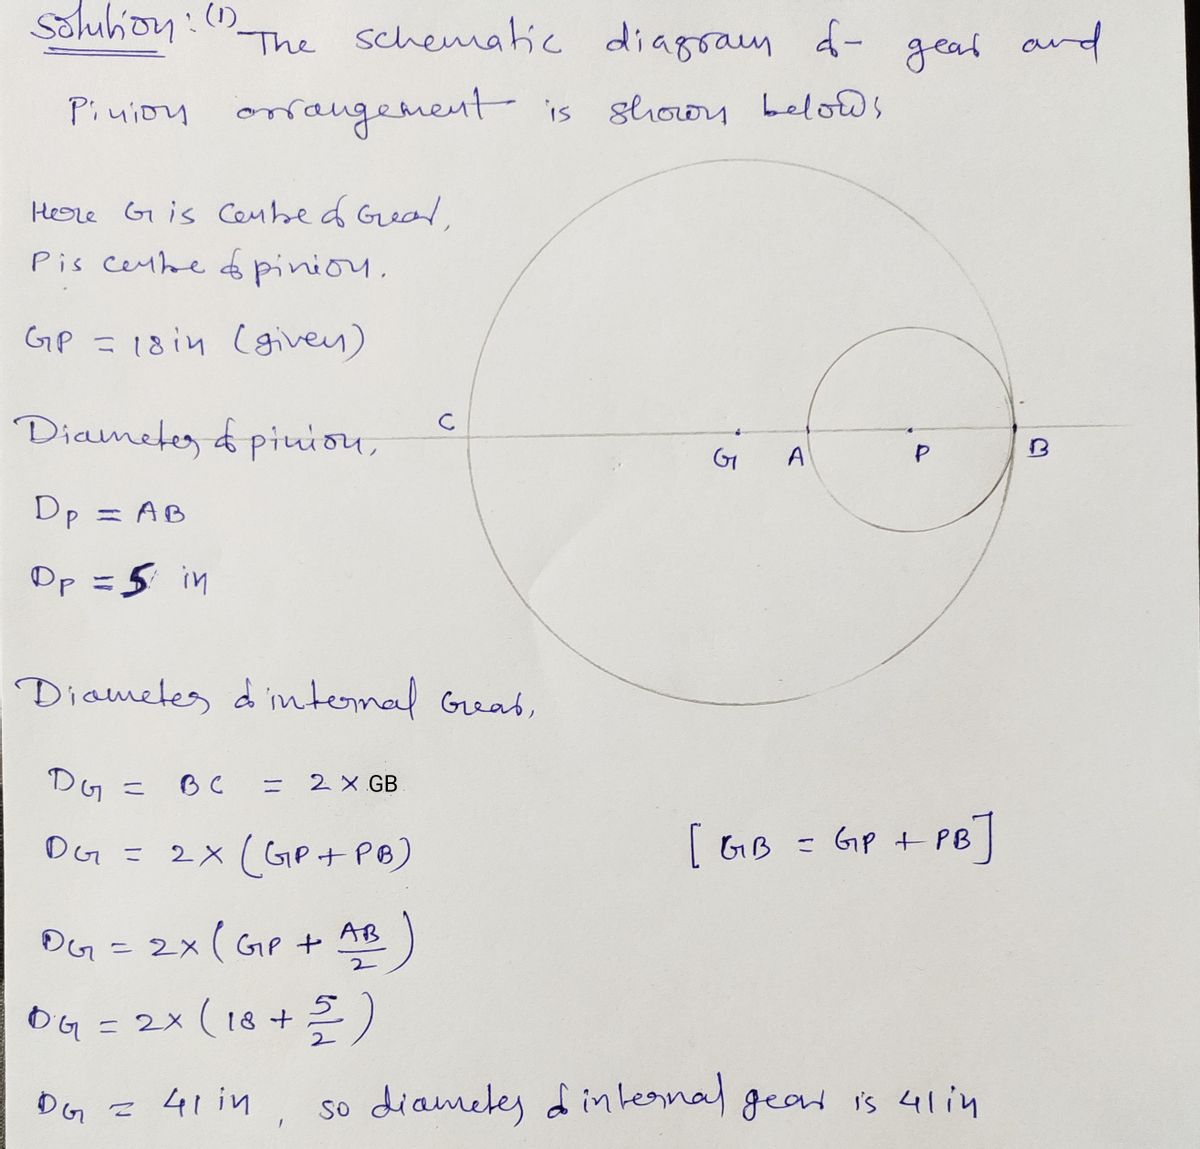 Solution: (1) The schematic diagram of gear and
Pinion arrangement is shown below:
Here G is Centre of Gear,
P is centre of pinion.
GP = 18 in (given)
Diameter of pinion,
C
G A P B
Dp = AB
Dp = 5 in
Diameter of internal Gear,
DG = BC = 2 × GB
DG = 2 × (GP + PB) [GB = GP + PB]
DG = 2 × (GP + AB/2)
DG = 2 × (18 + 5/2)
DG = 41 in, so diameter of internal gear is 41 in